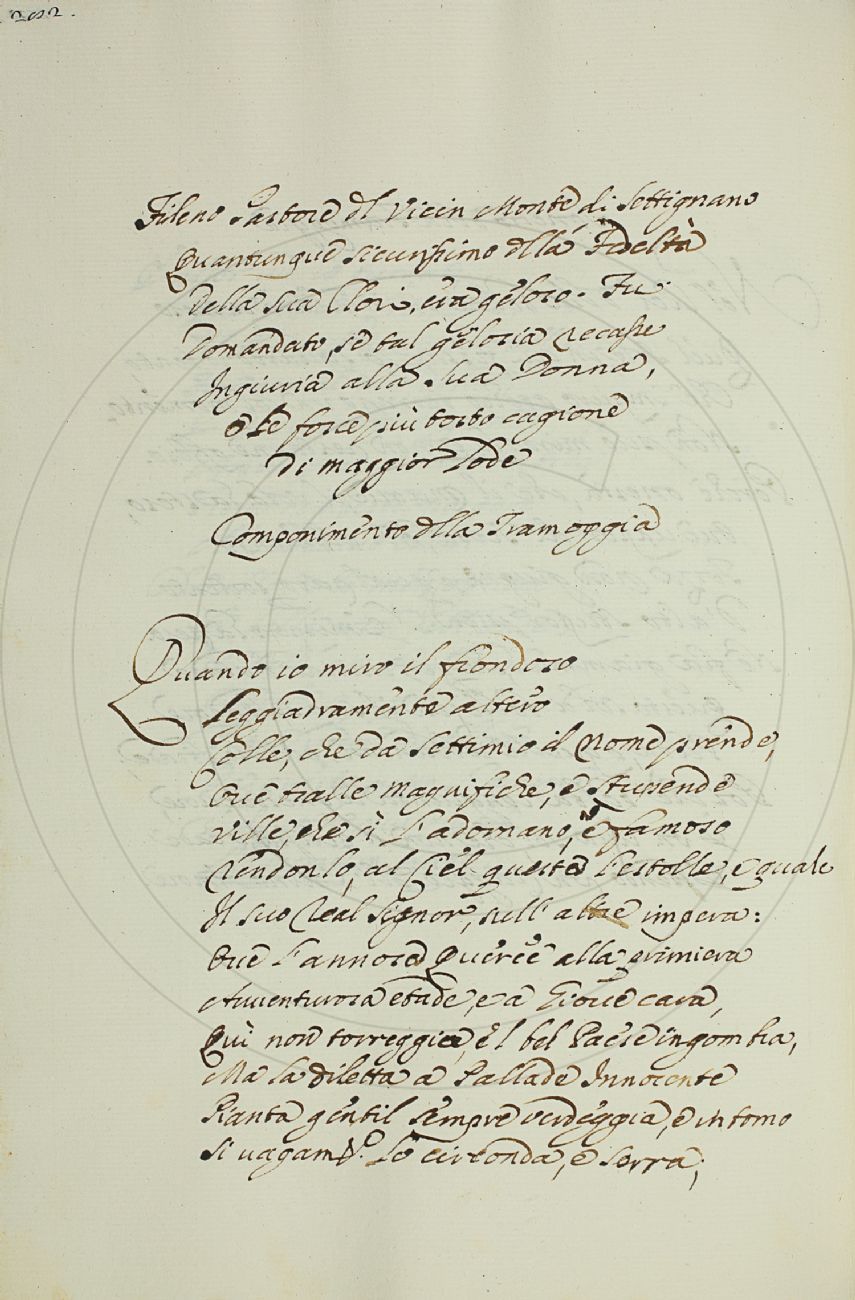 202.
Fileno Pastore dl vicin Monte di Settignano
Quantunque sicurissimo dlla Fedeltà
Della sua Clori, era geloso. Fu
Domandato, se tal gelosia recasse
Ingiuria alla sua Donna,
o se fosse più tosto cagione
di maggior Lode
Componimento dlla Tramoggia
Quando io miro il frondoso
Leggiadramente altero
Colle, che da Settimio il nome prende,
Ove tralle magnifiche, e stupende
Ville, che sì l'adornano, e famoso
Rendonlo, al Ciel questa s'estolle, e quale
Il suo Real Signor, sull'altre impera:
Ove l'annosa Querce alla primiera
Avventurosa etade, e a Giove cara,
Quì non torreggia, e 'l bel Paese ingombra,
Ma la diletta a Pallade Innocente
Pianta gentil sempre verdeggia, e intorno
Sì vagam.e lo circonda, e serra,